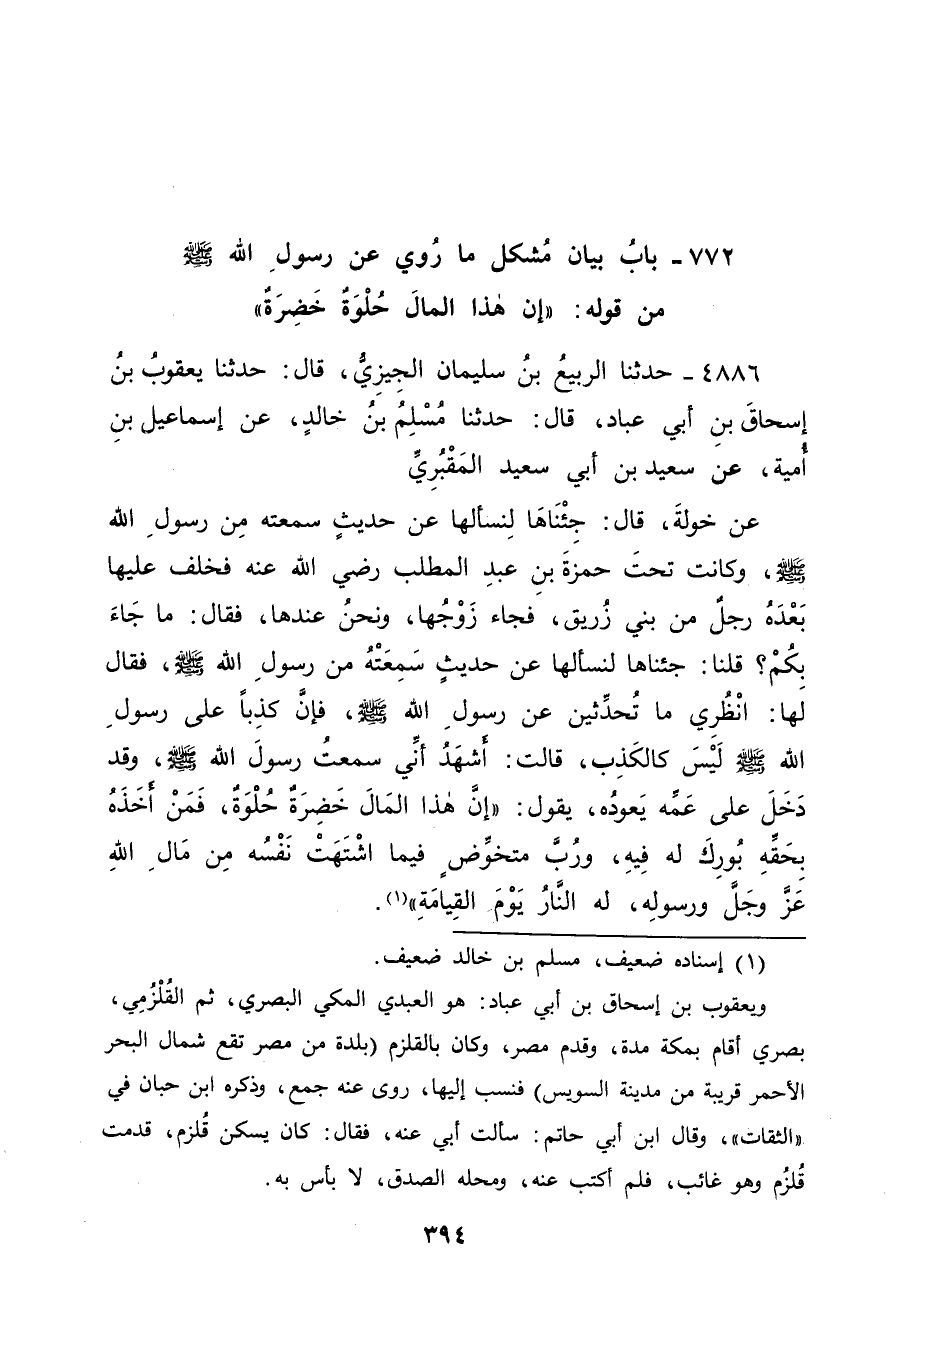 ٧٧٢ ـ بابُ بيان مُشكل ما رُوي عن رسولِ الله ﷺ
من قوله: «إن هٰذا المالَ حُلْوَةٌ خَضِرَةٌ»
٤٨٨٦ ـ حدثنا الربيعُ بنُ سليمان الجِيزِيُّ، قال: حدثنا يعقوبُ بنُ
إسحاقَ بنِ أبي عباد، قال: حدثنا مُسْلِمُ بنُ خالدٍ، عن إسماعيل بنِ
أُمية، عن سعيد بن أبي سعيد المَقْبُرِيِّ
عن خولةَ، قال: جِئْنَاهَا لِنسألها عن حديثٍ سمعته مِن رسولِ الله
ﷺ، وكانت تحتَ حمزةَ بنِ عبدِ المطلب رضي الله عنه فخلف عليها
بَعْدَهُ رجلٌ من بني زُريق، فجاء زَوْجُها، ونحنُ عندها، فقال: ما جَاءَ
بِكُمْ؟ قلنا: جئناها لنسألها عن حديثٍ سَمِعَتْهُ من رسولِ الله ﷺ، فقال
لها: انْظُرِي ما تُحدِّثين عن رسولِ الله ﷺ، فإنَّ كذِباً على رسولِ
الله ﷺ لَيْسَ كالكَذِب، قالت: أَشهَدُ أَنِّي سمعتُ رسولَ الله ﷺ، وقد
دَخَلَ على عَمِّه يَعودُه، يقول: «إنَّ هٰذا المَالَ خَضِرَةٌ حُلْوَةٌ، فَمَنْ أَخَذَهُ
بِحَقِّهِ بُورِكَ له فِيهِ، ورُبَّ متخوِّضٍ فيما اشْتَهَتْ نَفْسُه مِن مَالِ اللهِ
عَزَّ وجَلَّ ورسولِه، له النَّارُ يَوْمَ القِيامَةِ»(١).
(١) إسناده ضعيف، مسلم بن خالد ضعيف.
ويعقوب بن إسحاق بن أبي عباد: هو العبدي المكي البصري، ثم القُلْزُمِي،
بصري أقام بمكة مدة، وقدم مصر، وكان بالقلزم (بلدة من مصر تقع شمال البحر
الأحمر قريبة من مدينة السويس) فنسب إليها، روى عنه جمع، وذكره ابن حبان في
«الثقات»، وقال ابن أبي حاتم: سألت أبي عنه، فقال: كان يسكن قُلزم، قدمت
قُلزُم وهو غائب، فلم أكتب عنه، ومحله الصدق، لا بأس به.
٣٩٤